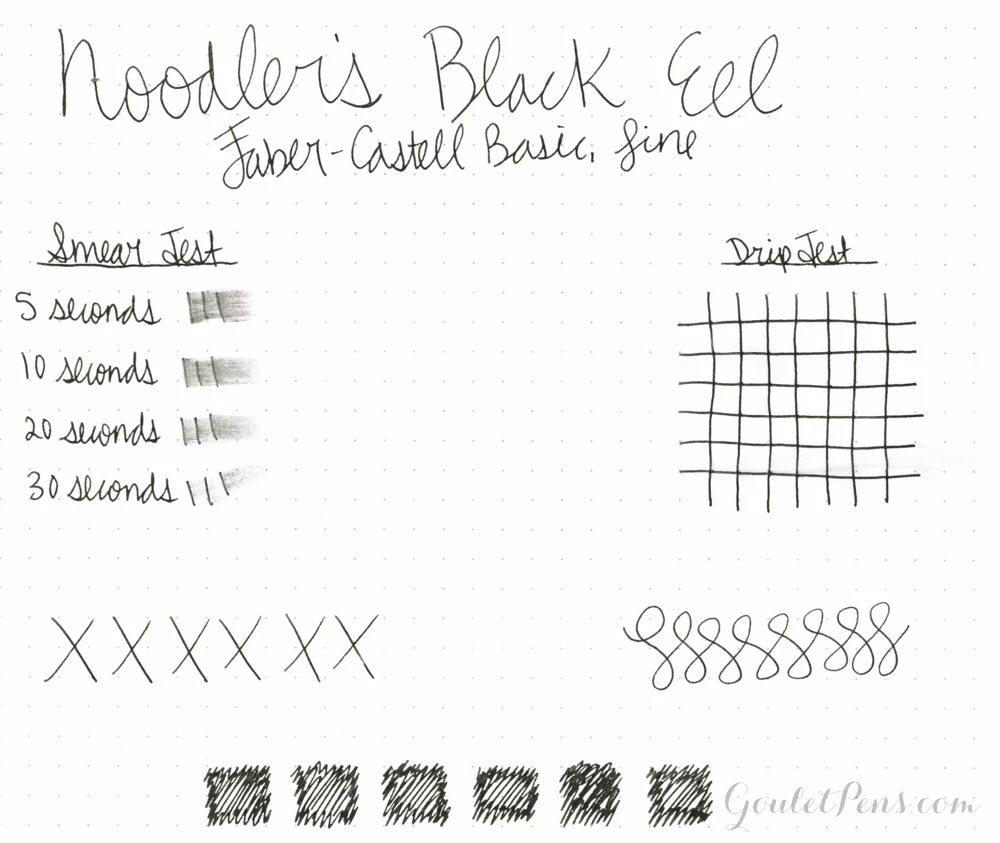 Noodler's Black Eel
Faber-Castell Basic, fine
Smear Test
Drip Test
5 seconds
10 seconds
20 seconds
30 seconds
X X X X X X
GouletPens.com